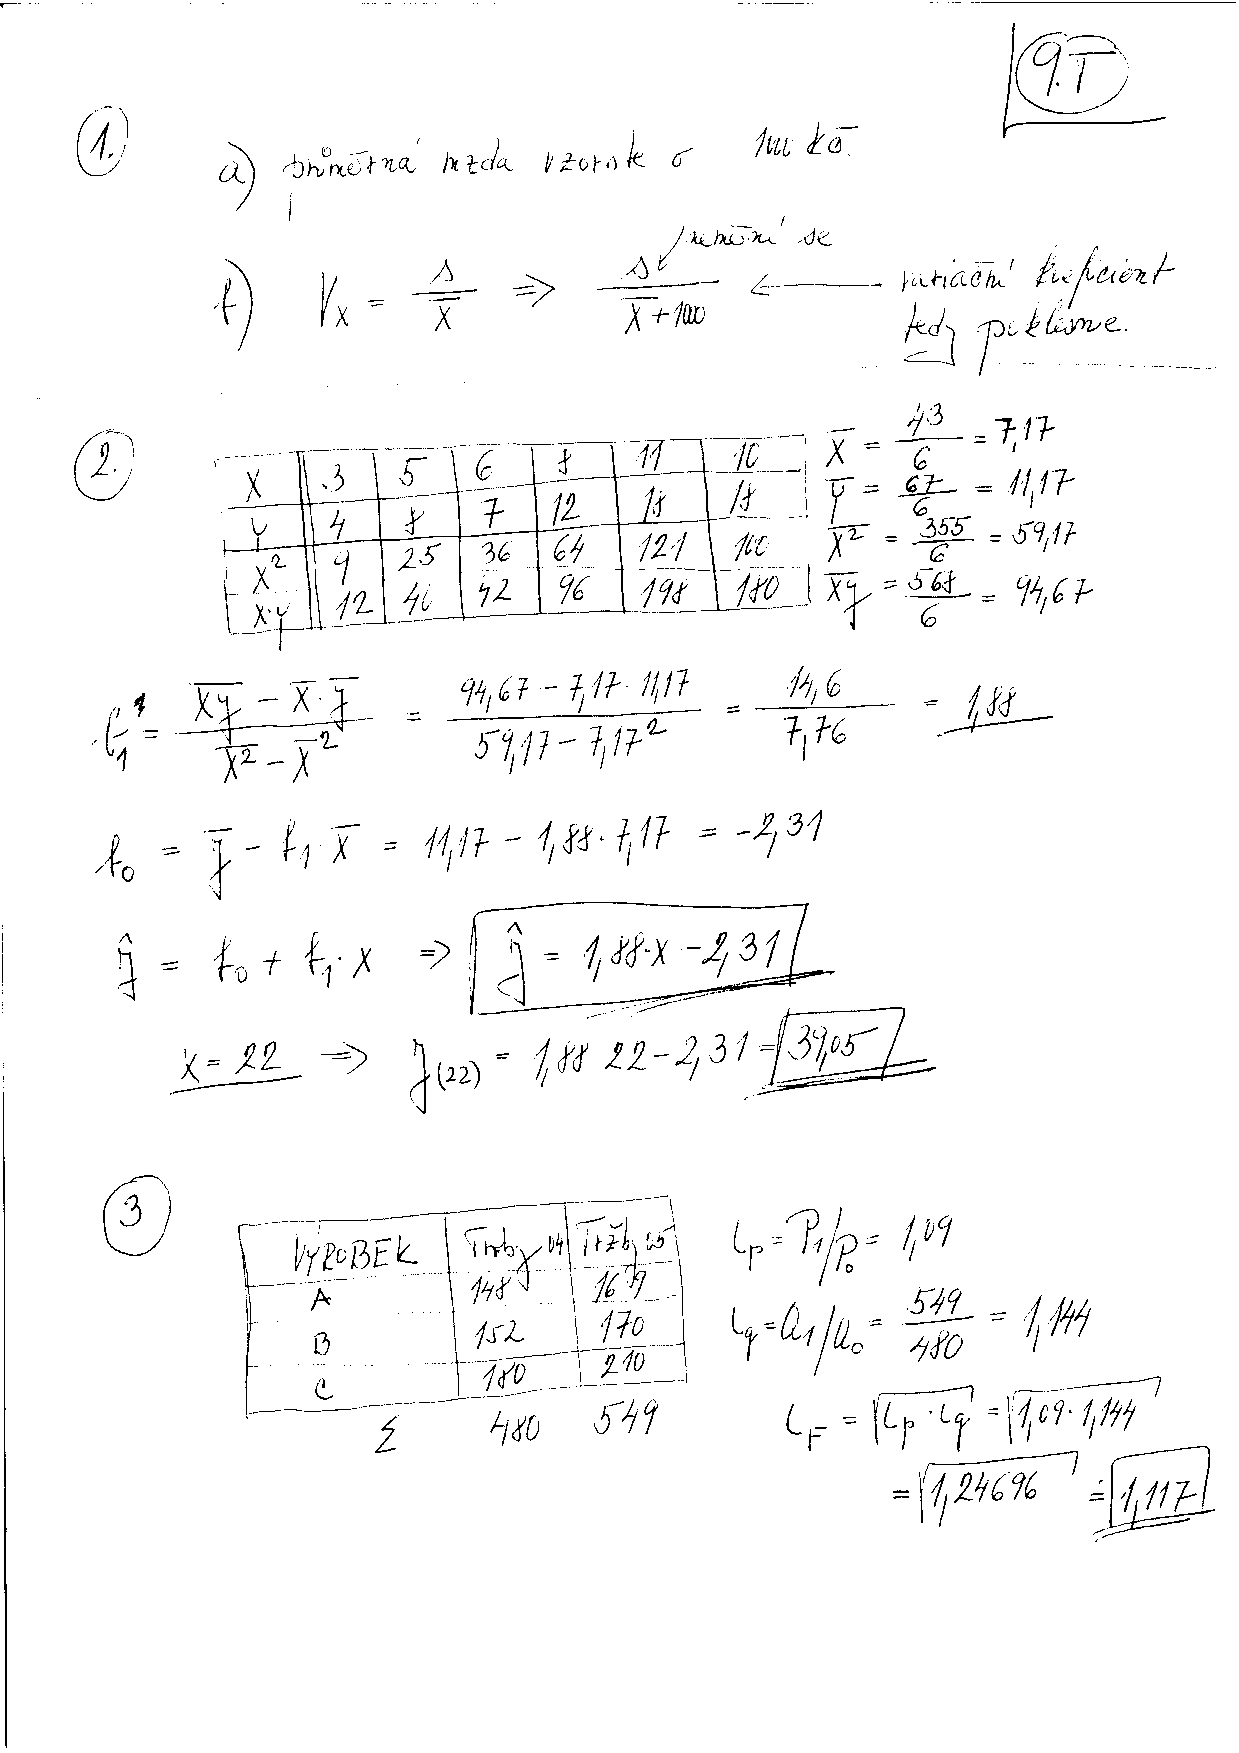 9.T
1.
a) průměrná mzda vzroste o 1000 kč.
nemění se
b) Vx = s / x̄ => s / (x̄ + 1000) ← variační koeficient
tedy poklesne.
2.
X 3 5 6 8 11 10
Y 4 8 7 12 18 18
X² 9 25 36 64 121 100
X·Y 12 40 42 96 198 180
X̄ = 43/6 = 7,17
Ȳ = 67/6 = 11,17
X̄² = 355/6 = 59,17
X̄ȳ = 568/6 = 94,67
b₁ = (x̄ȳ − x̄·ȳ) / (x̄² − x̄²) = (94,67 − 7,17·11,17) / (59,17 − 7,17²) = 14,6 / 7,76 = 1,88
b₀ = ȳ − b₁·x̄ = 11,17 − 1,88·7,17 = −2,31
ŷ = b₀ + b₁·x => ŷ = 1,88·x − 2,31
x = 22 => y(22) = 1,88 22 − 2,31 = 39,05
3
VÝROBEK Tržby 04 Tržby 05
A 148 169
B 152 170
C 180 210
Σ 480 549
Ip = P₁/P₀ = 1,09
Iq = Q₁/Q₀ = 549/480 = 1,144
IF = √(Ip·Iq) = √(1,09·1,144)
= √1,24696 = 1,117